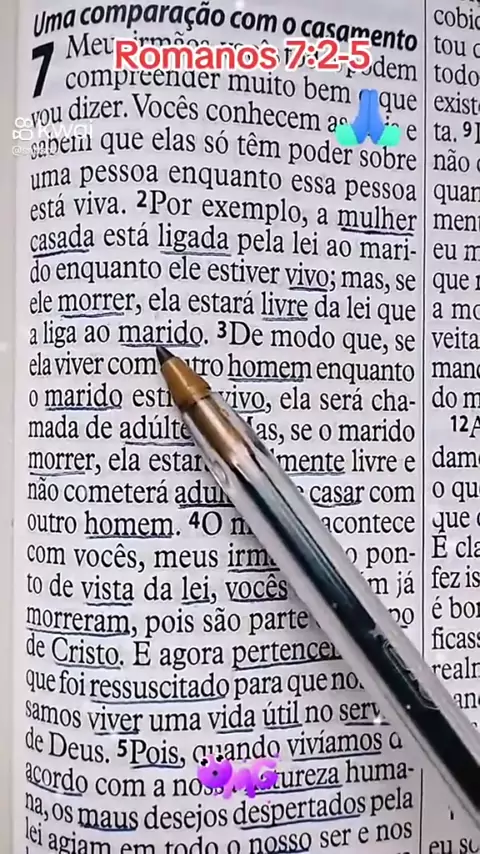 Uma comparação com o casamento
7 Meus irmãos, podem
Romanos 7:2-5
compreender muito bem o que
vou dizer. Vocês conhecem as e
Kwai
sabem que elas só têm poder sobre
uma pessoa enquanto essa pessoa
está viva. 2Por exemplo, a mulher
casada está ligada pela lei ao mari-
do enquanto ele estiver vivo; mas, se
ele morrer, ela estará livre da lei que
a liga ao marido. 3De modo que, se
ela viver com outro homem enquanto
o marido vivo, ela será cha-
mada de Mas, se o marido
morrer, ela livre e
não cometerá casar com
outro homem. 4O acontece
com vocês, meus pon-
to de vista da lei, vocês já
morreram, pois são parte
de Cristo. E agora
que foi ressuscitado para que
samos viver uma vida útil no
de Deus. 5Pois, quando vivíamos
acordo com a natureza huma-
na, os maus desejos despertados pela
lei agiam em todo o nosso ser e nos
cobi
tou
todo
exist
ta. 9
não
quan
men
eu m
que
a mo
veita
man
do m
12A
dam
o qu
que
É cla
fez is
é bo
ficas
realm
eu so